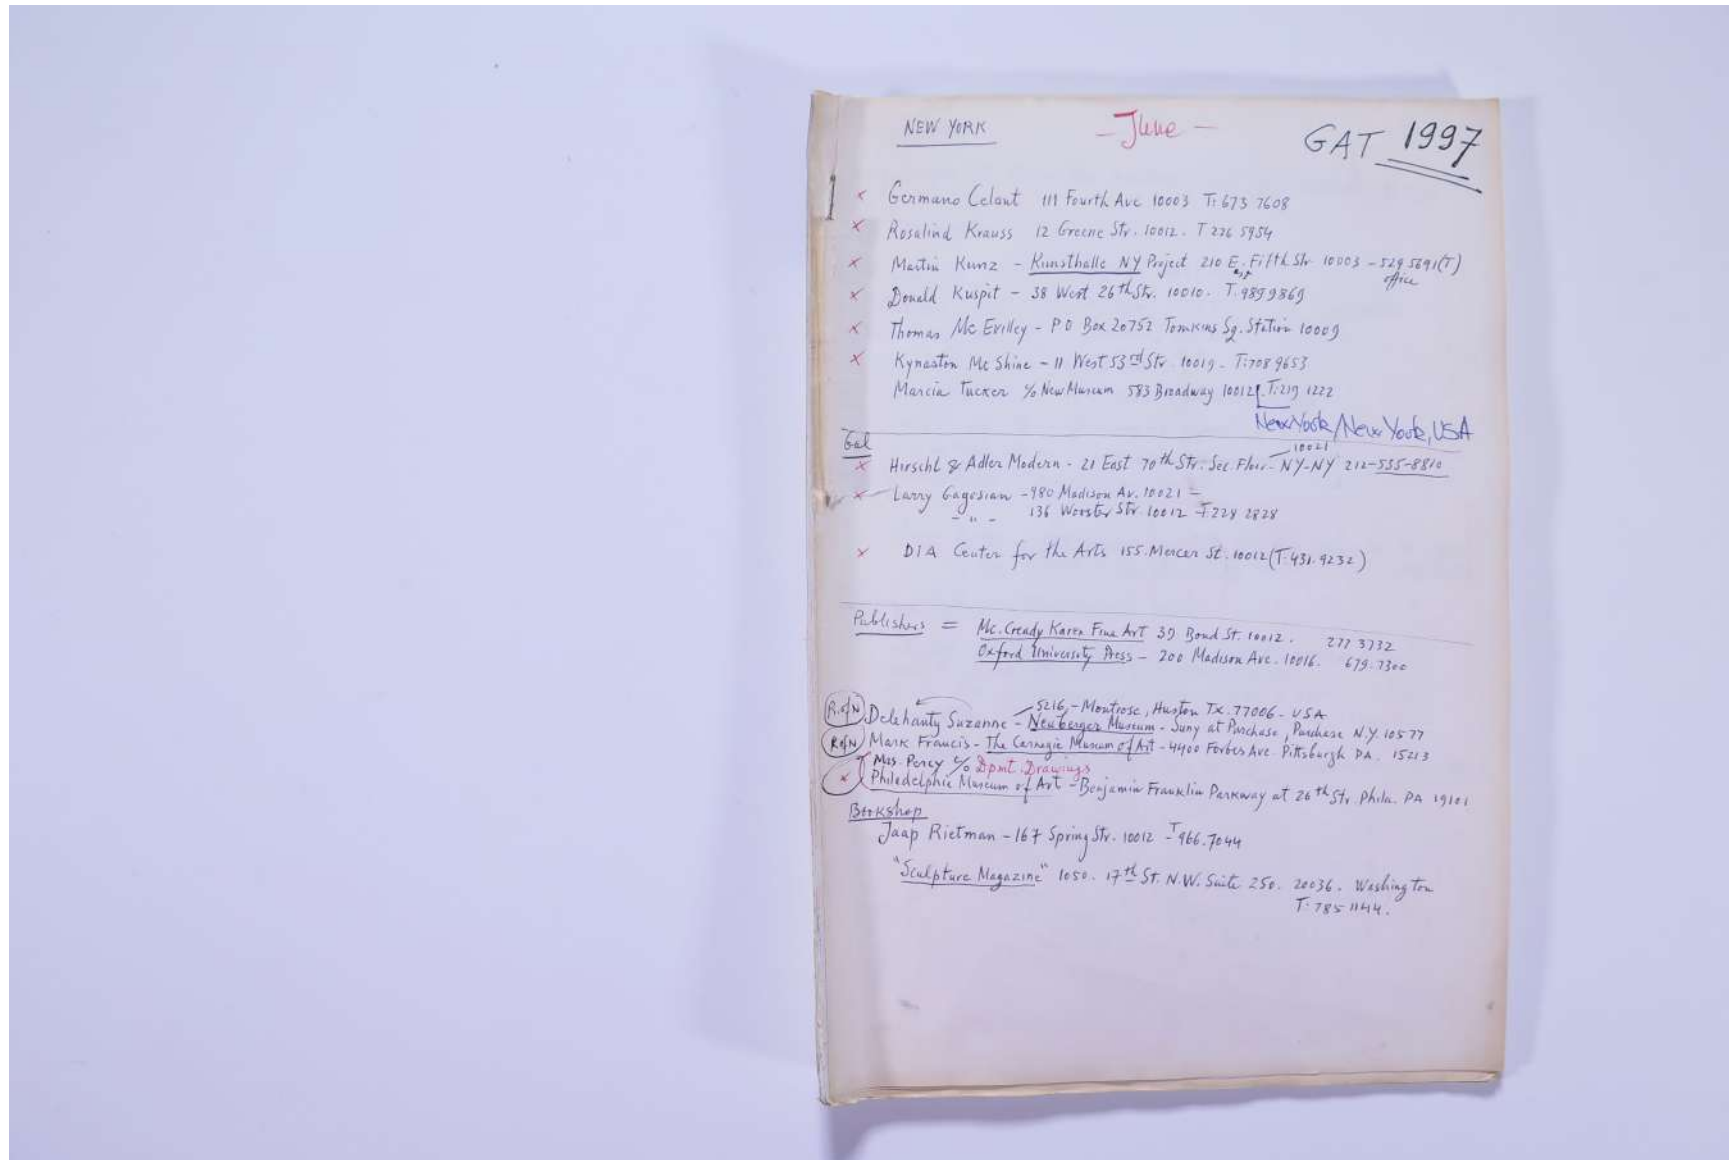 NEW YORK
– June –
GAT 1997
x Germano Celant 111 Fourth Ave 10003 T: 673 7608
x Rosalind Krauss 12 Greene Str. 10012. T 226 5954
x Martin Kunz – Kunsthalle NY Project 210 E. Fifth Str 10003 – 529 5691 (T)
est office
x Donald Kuspit – 38 West 26th Str. 10010. T. 989 9869
x Thomas Mc Evilley – PO Box 20752 Tomkins Sq. Station 10009
x Kynaston Mc Shine – 11 West 53rd Str 10019 – T: 708 9653
Marcia Tucker c/o New Museum 583 Broadway 10012. T: 219 1222
New York/New York, USA
Gal
10021
x Hirschl & Adler Modern – 21 East 70th Str. Sec. Floor – NY–NY 212–535–8810
x Larry Gagosian – 980 Madison Av. 10021 –
– " – 136 Wooster Str. 10012 – T. 228 2828
x DIA Center for the Arts 155 Mercer St. 10012 (T. 431. 9232)
Publishers = Mc. Cready Karen Fine Art 39 Bond St. 10012. 277 3732
Oxford University Press – 200 Madison Ave. 10016. 679. 7300
5216 – Montrose, Huston Tx. 77006 – USA
R.ofN Delehanty Suzanne – Neuberger Museum – Suny at Purchase, Purchase N.Y. 10577
RofN Mark Francis – The Carnegie Museum of Art – 4400 Forbes Ave Pittsburgh PA. 15213
Mrs. Percy c/o Dpmt. Drawings
x Philadelphia Museum of Art – Benjamin Franklin Parkway at 26th Str. Phila. PA 19101
Bookshop
Jaap Rietman – 167 Spring Str. 10012 – T 966. 7044
"Sculpture Magazine" 1050. 17th St. N.W. Suite 250. 20036. Washington
T. 785 1144.